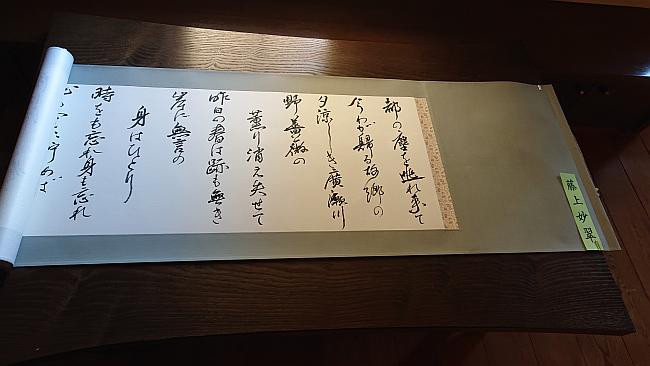 都の塵を逃れ来て
今わが歸る故郷の
夕涼しき廣瀬川
野薔薇の
薫り消え失せて
昨日の春は跡も無き
岸に無言の
身はひとり
時をも忘れ身も忘れ
藤上妙翠